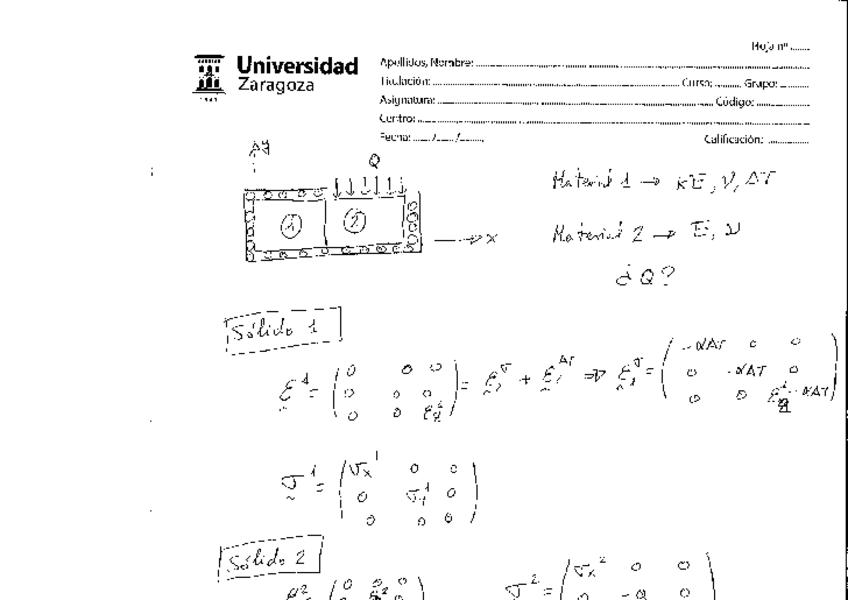 Hoja nº
Universidad
Zaragoza
1542
Apellidos, Nombre:
Titulación: Curso: Grupo:
Asignatura: Código:
Centro:
Fecha: / /
Calificación:
Δy
Q
1 2
x
Material 1 → kE, ν, ΔT
Material 2 → E, ν
¿Q?
Sólido 1
ε¹ = (0 0 0; 0 0 0; 0 0 ε_z¹) = ε₁^σ + ε₁^ΔT ⇒ ε₁^σ = (-αΔT 0 0; 0 -αΔT 0; 0 0 ε_z¹-αΔT)
σ¹ = (σx¹ 0 0; 0 σy¹ 0; 0 0 0)
Sólido 2
ε² (0 0 0
σ² = (σx² 0 0
0 -Q 0